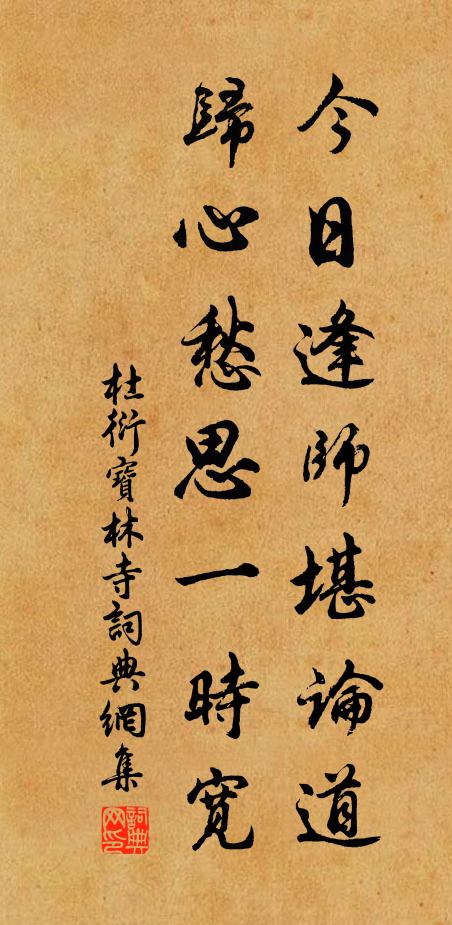 今日逢師堪論道
歸心愁思一時寬
杜衍寶林寺詞典網集
詞典網印